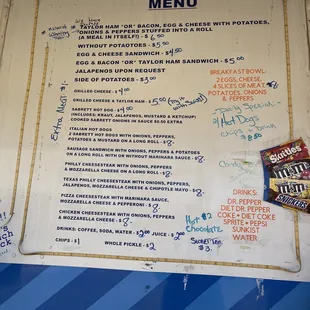 MENU
TAYLOR HAM "OR" BACON, EGG & CHEESE WITH POTATOES,
ONIONS & PEPPERS STUFFED INTO A ROLL
(A MEAL IN ITSELF!) - $6.50
WITHOUT POTATOES - $5.50
EGG & CHEESE SANDWICH - $4.50
EGG & BACON "OR" TAYLOR HAM SANDWICH - $5.00
JALAPENOS UPON REQUEST
SIDE OF POTATOES - $3.00
GRILLED CHEESE - $4.00
GRILLED CHEESE & TAYLOR HAM - $5.00
SABRETT HOT DOG - $4.00
(INCLUDES: KRAUT, JALAPENOS, MUSTARD & KETCHUP)
COOKED SABRETT ONIONS IN SAUCE $1 EXTRA
Extra Meat $1.-
ITALIAN HOT DOGS
2 SABRETT HOT DOGS WITH ONIONS, PEPPERS,
POTATOES & MUSTARD ON A LONG ROLL - $8.
SAUSAGE SANDWICH WITH ONIONS, PEPPERS & POTATOES
ON A LONG ROLL WITH OR WITHOUT MARINARA SAUCE - $8.
PHILLY CHEESESTEAK WITH ONIONS, PEPPERS
& MOZZARELLA CHEESE ON A LONG ROLL - $8.
TEXAS PHILLY CHEESESTEAK WITH ONIONS, PEPPERS,
JALAPENOS, MOZZARELLA CHEESE & CHIPOTLE MAYO - $8.
PIZZA CHEESESTEAK WITH MARINARA SAUCE,
MOZZARELLA CHEESE & PEPPERONI - $8
CHICKEN CHEESESTEAK WITH ONIONS, PEPPERS
& MOZZARELLA CHEESE - $8
DRINKS: COFFEE, SODA, WATER - $2.00 JUICE - $2.00
CHIPS - $1
WHOLE PICKLE - $2
BREAKFAST BOWL
2 EGGS, CHEESE,
4 SLICES OF MEAT $8
POTATOES, ONIONS
& PEPPERS
Special
2 Hot Dogs
chips + drink
$8.50
DRINKS:
DR. PEPPER
DIET DR. PEPPER
COKE • DIET COKE
SPRITE • PEPSI
SUNKIST
WATER
Hot $2
chocolate
Sweet Tea
$3.
Skittles
m&m's
m&m's
SNICKERS